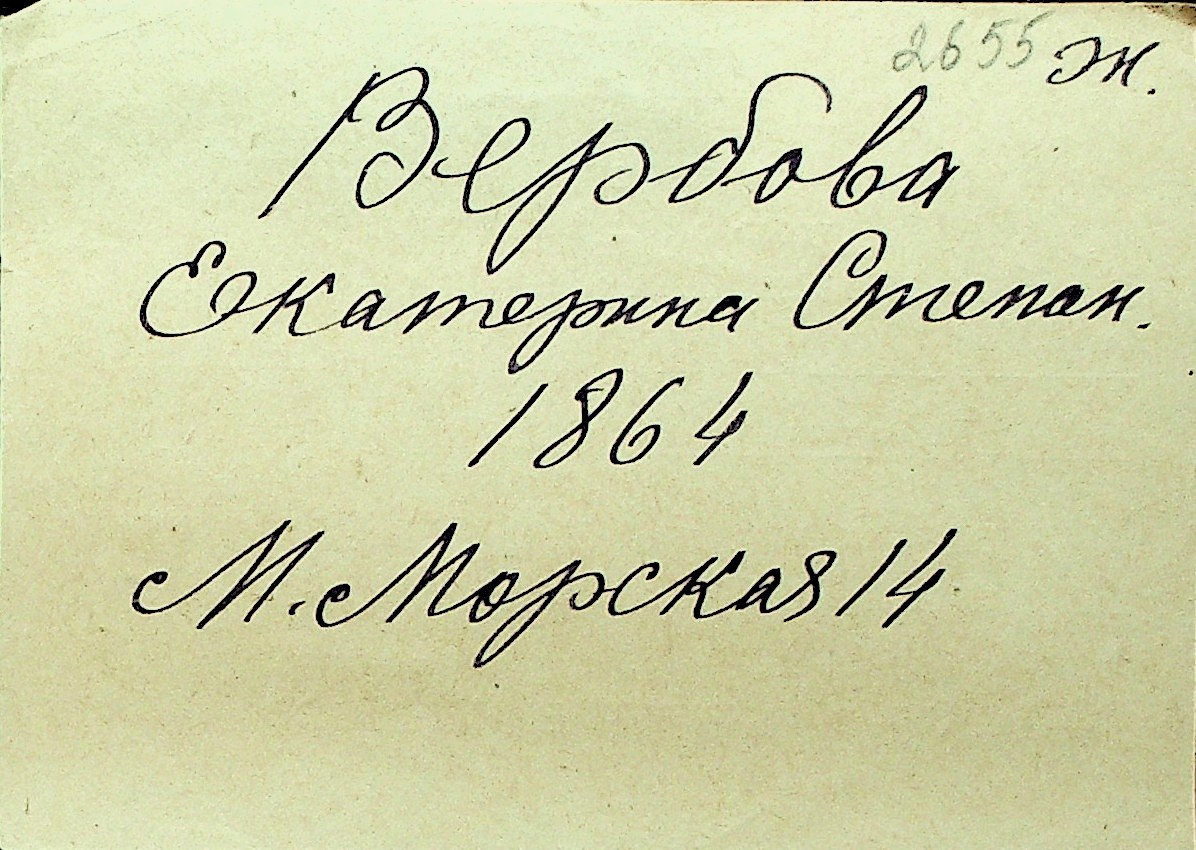 2655 ж.
Вербова
Екатерина Степан.
1864
М. Морская 14